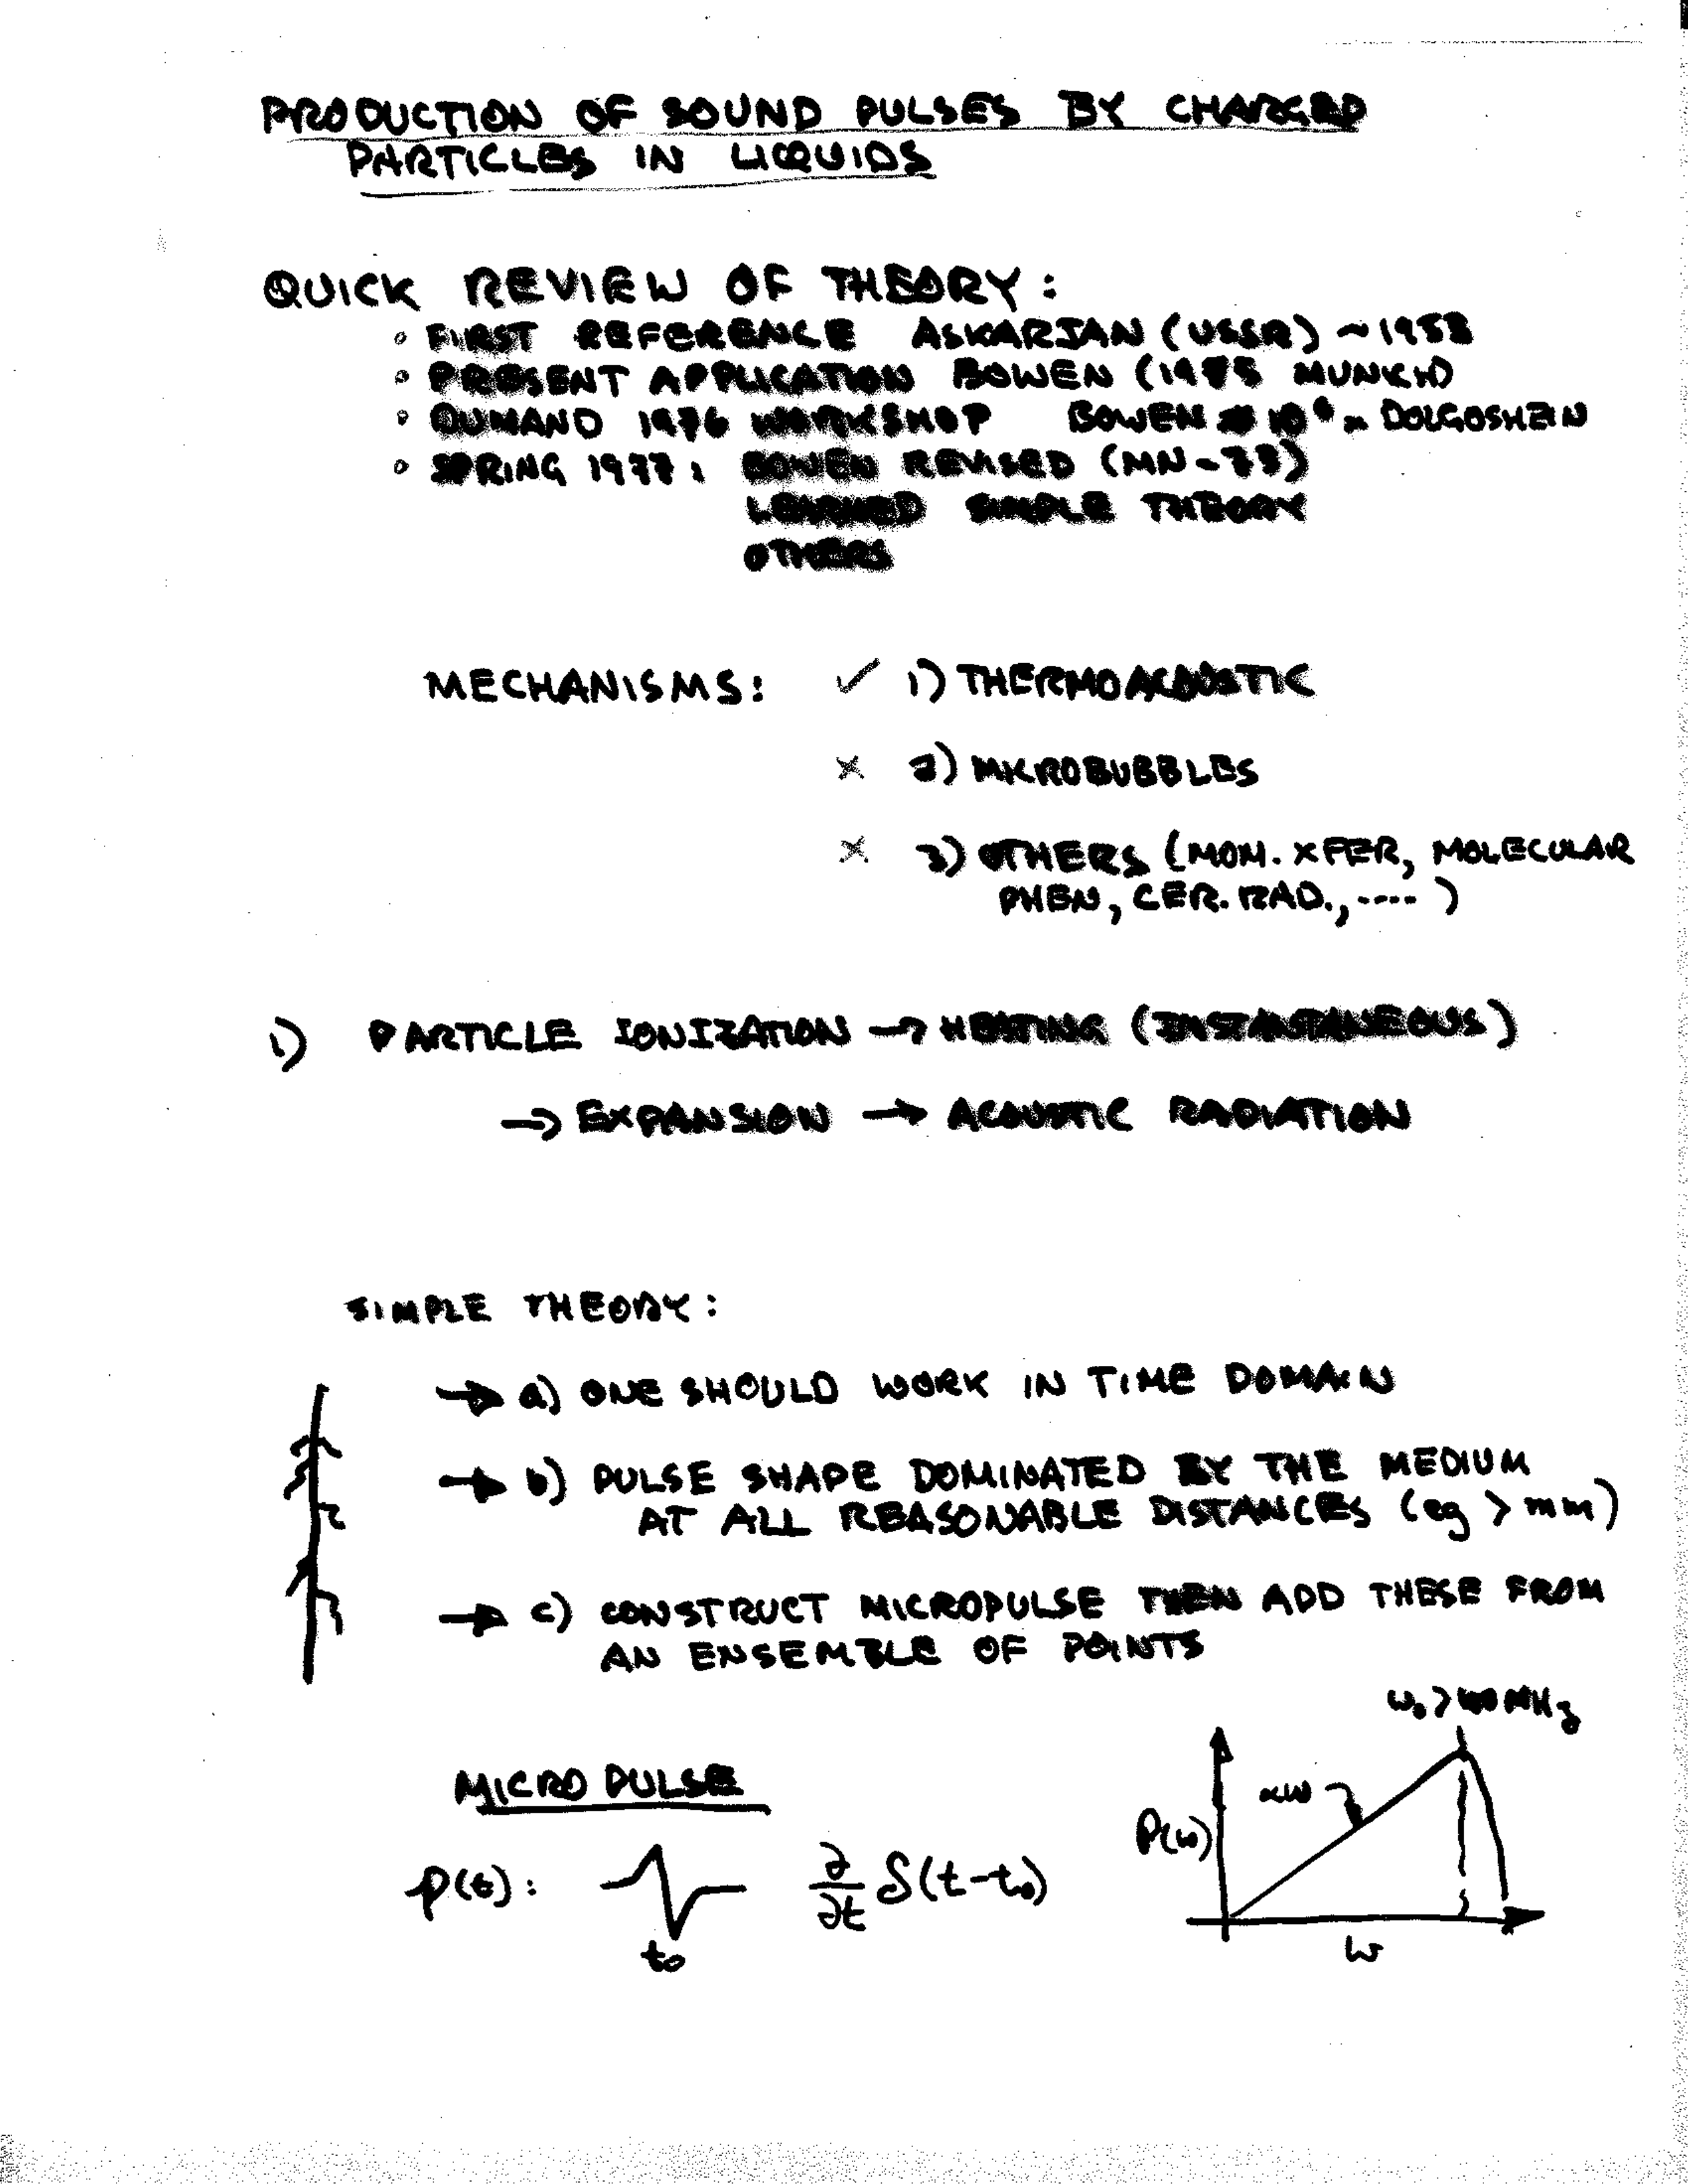 PRODUCTION OF SOUND PULSES BY CHARGED
PARTICLES IN LIQUIDS
QUICK REVIEW OF THEORY:
• FIRST REFERENCE ASKARJAN (USSR) ~1958
• PRESENT APPLICATION BOWEN (1975 MUNICH)
• DUMAND 1976 WORKSHOP BOWEN 10⁶ × DOLGOSHEIN
• SPRING 1977: BOWEN REVISED (MN-73)
LEARNED SIMPLE THEORY
OTHERS
MECHANISMS: ✓ 1) THERMOACOUSTIC
× 2) MICROBUBBLES
× 3) OTHERS (MOM. XFER, MOLECULAR
PHEN, CER. RAD., ....)
1) PARTICLE IONIZATION → HEATING (INSTANTANEOUS)
→ EXPANSION → ACOUSTIC RADIATION
SIMPLE THEORY:
→ a) ONE SHOULD WORK IN TIME DOMAIN
→ b) PULSE SHAPE DOMINATED BY THE MEDIUM
AT ALL REASONABLE DISTANCES (eg > mm)
→ c) CONSTRUCT MICROPULSE THEN ADD THESE FROM
AN ENSEMBLE OF POINTS
ω₀ > MHz
MICRO PULSE
∝ω
P(ω)
p(t): ∂/∂t δ(t-t₀)
t₀
ω